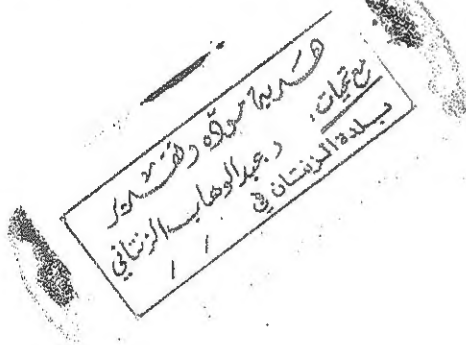 هدية مودة وتقدير
مع تحيات:
د. عبدالوهاب الزنتاني
بلدة الزنتان في / /